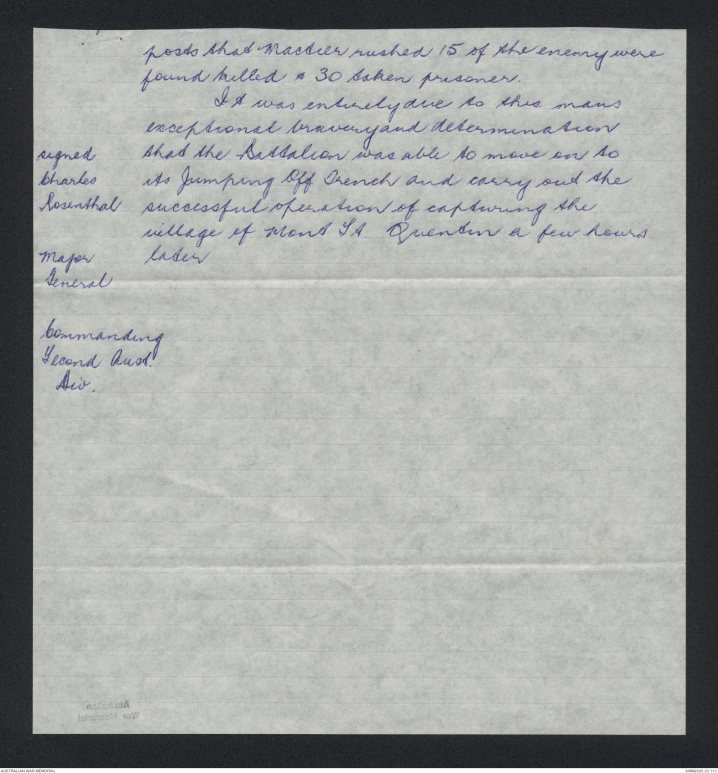 posts that Mactier rushed 15 of the enemy were
found killed & 30 taken prisoner.
It was entirely due to this mans
exceptional bravery and determination
that the Battalion was able to move on to
its Jumping Off Trench and carry out the
successful operation of capturing the
village of Mont St Quentin a few hours
later
signed
Charles
Rosenthal
Major
General
Commanding
Second Aust.
Div.
Australian
War Memorial
AUSTRALIAN WAR MEMORIAL